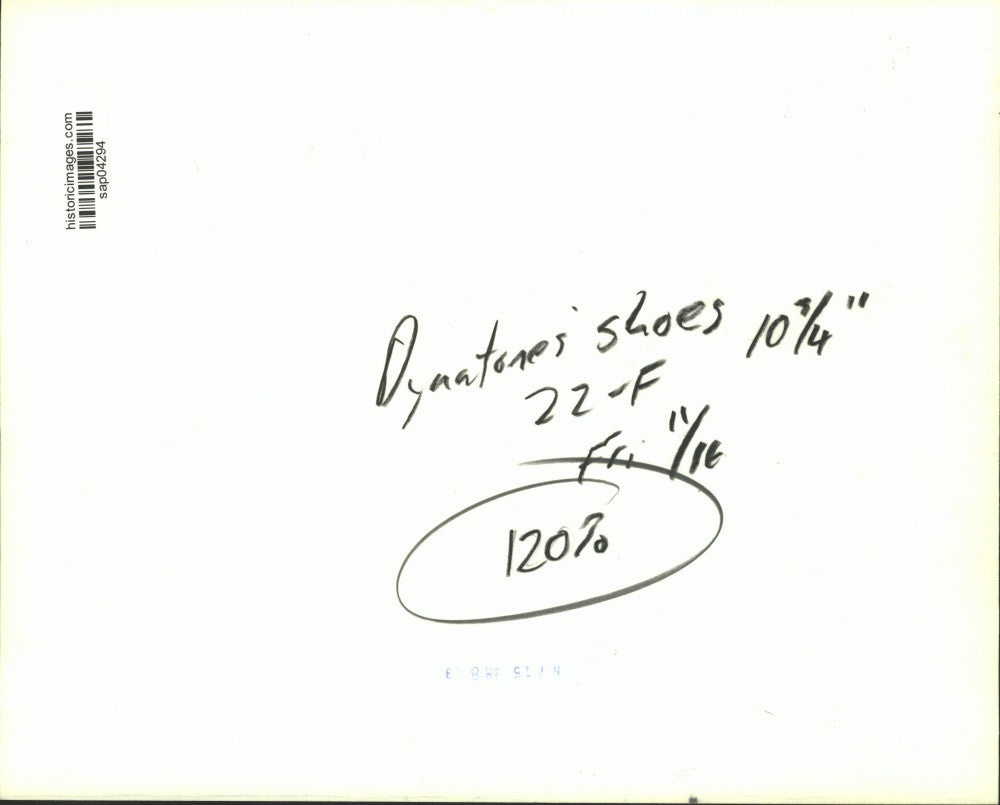 historicimages.com
sap04294
Dynatones' shoes 10 3/4"
22-F
Fri 11/16
120%